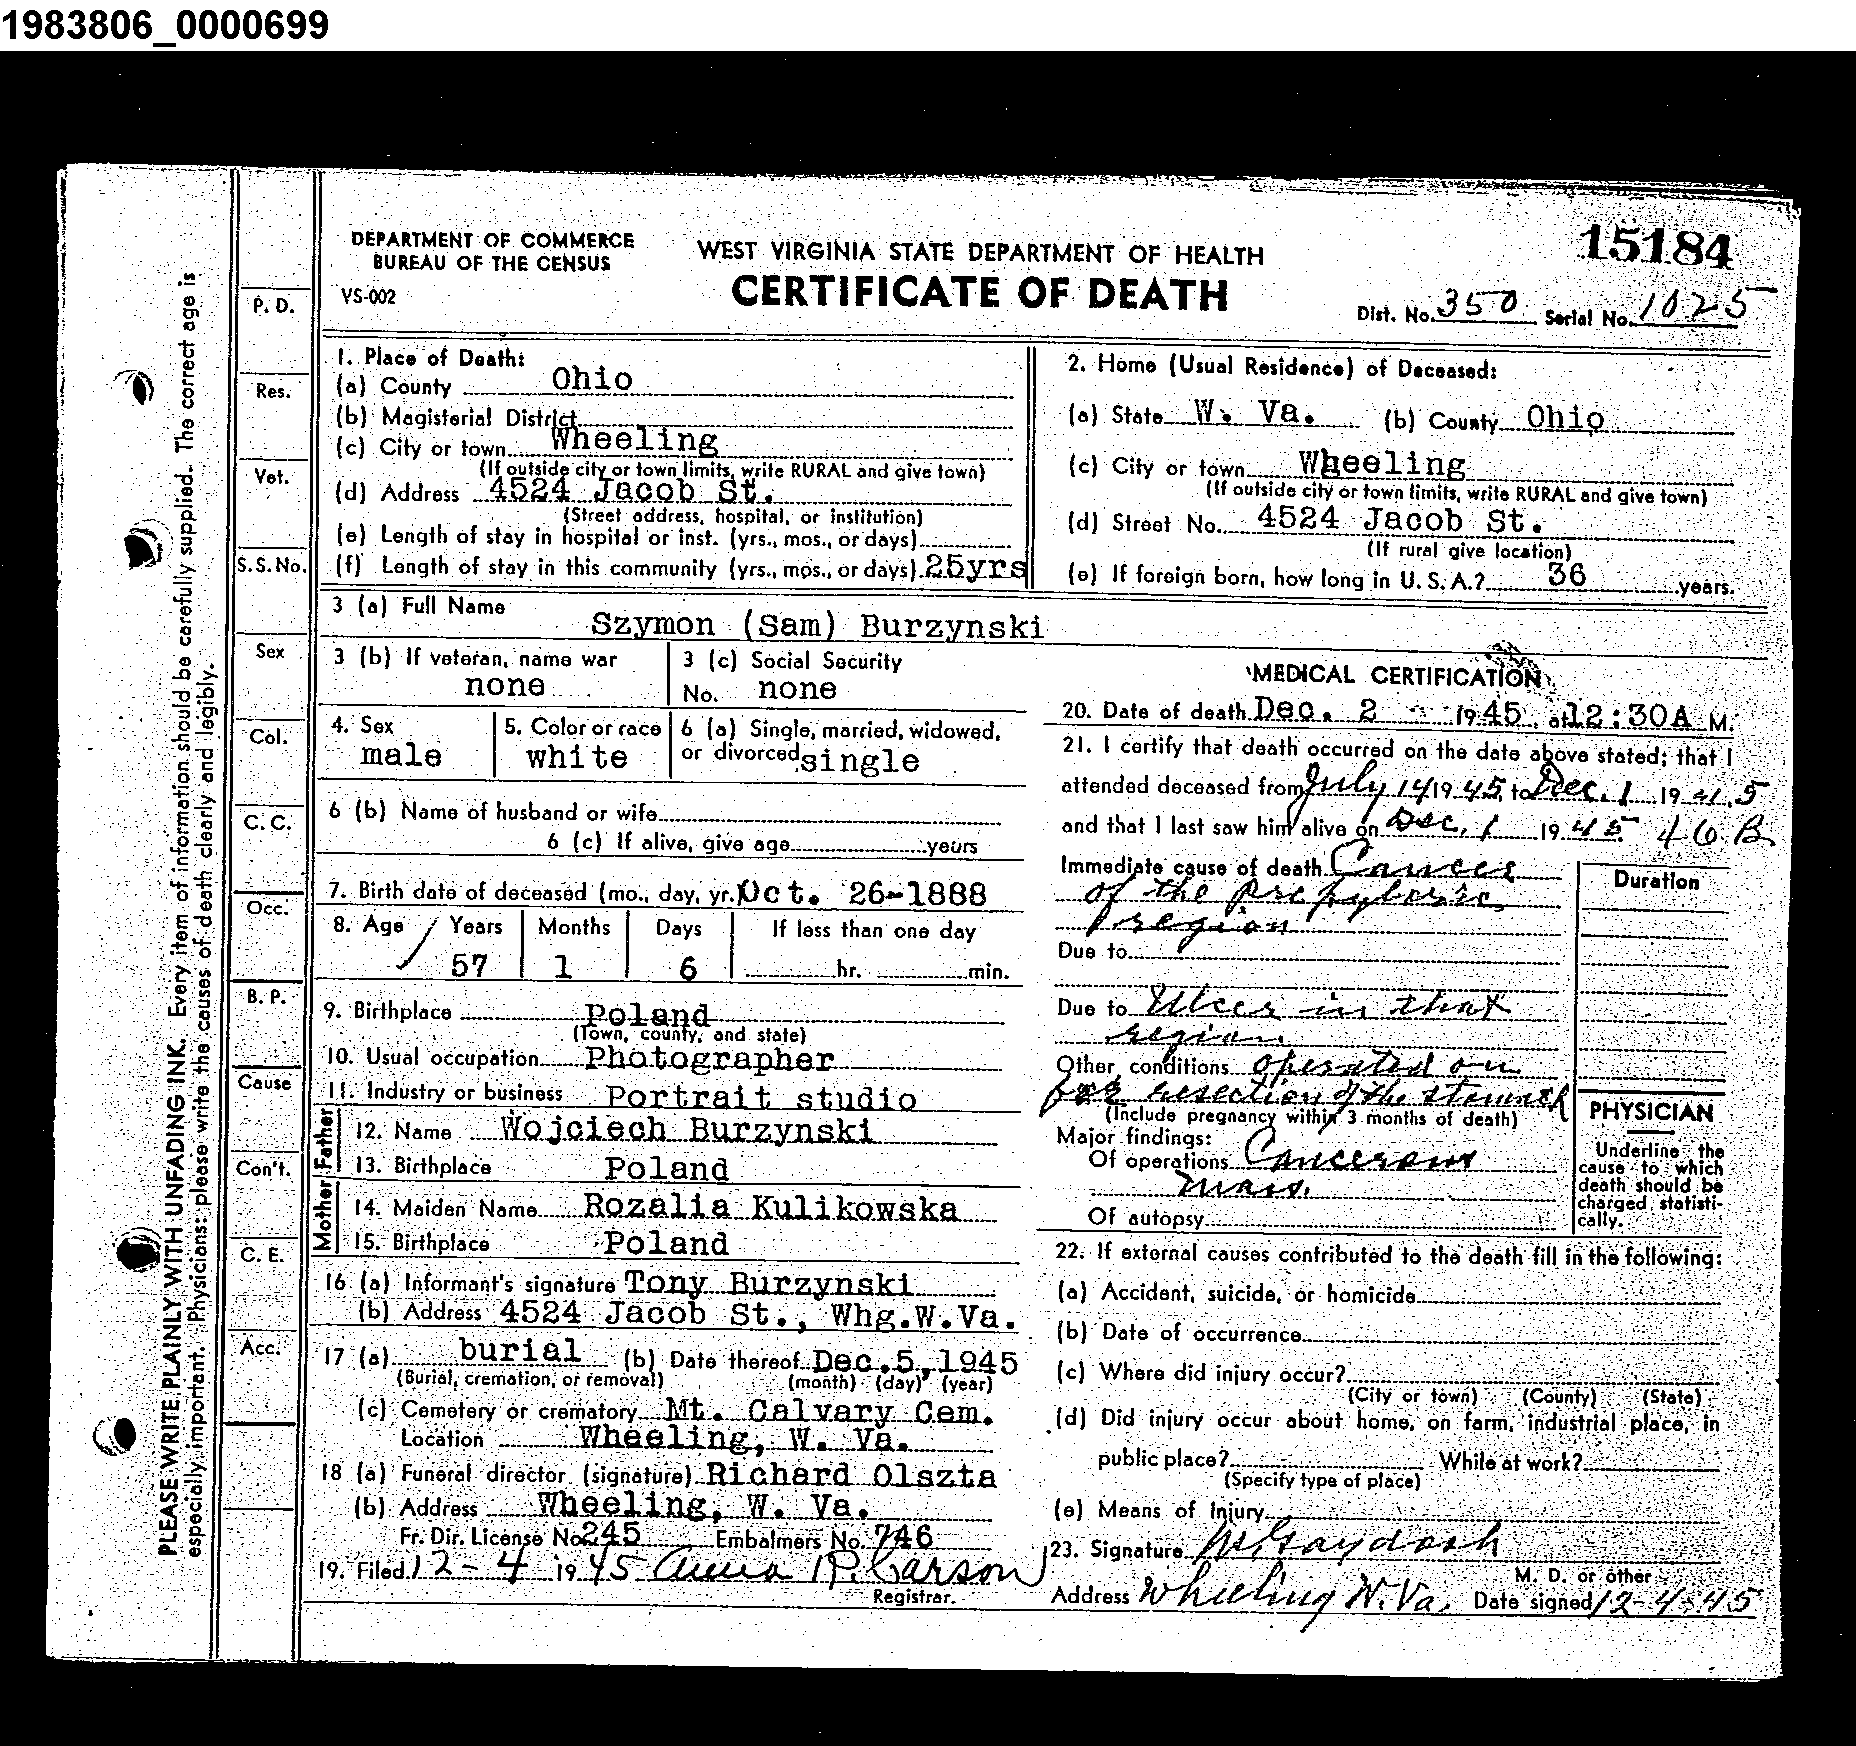 1983806_0000699
DEPARTMENT OF COMMERCE
BUREAU OF THE CENSUS
VS-002
WEST VIRGINIA STATE DEPARTMENT OF HEALTH
CERTIFICATE OF DEATH
15184
Dist. No. 350 Serial No. 1025
PLEASE WRITE PLAINLY WITH UNFADING INK. Every item of information should be carefully supplied. The correct age is
especially important. Physicians: please write the causes of death clearly and legibly.
P. D.
Res.
Vet.
S. S. No.
Sex
Col.
C. C.
Occ.
B. P.
Cause
Con't.
C. E.
Acc.
1. Place of Death:
(a) County Ohio
(b) Magisterial District
(c) City or town Wheeling
(If outside city or town limits, write RURAL and give town)
(d) Address 4524 Jacob St.
(Street address, hospital, or institution)
(e) Length of stay in hospital or inst. (yrs., mos., or days)
(f) Length of stay in this community (yrs., mos., or days) 25yrs
2. Home (Usual Residence) of Deceased:
(a) State W. Va. (b) County Ohio
(c) City or town Wheeling
(If outside city or town limits, write RURAL and give town)
(d) Street No. 4524 Jacob St.
(If rural give location)
(e) If foreign born, how long in U. S. A.? 36 years.
3 (a) Full Name Szymon (Sam) Burzynski
3 (b) If veteran, name war
none
3 (c) Social Security
No. none
4. Sex
male
5. Color or race
white
6 (a) Single, married, widowed,
or divorced single
6 (b) Name of husband or wife
6 (c) If alive, give age years
7. Birth date of deceased (mo., day, yr.) Oct. 26-1888
8. Age Years Months Days If less than one day
57 1 6 hr. min.
9. Birthplace Poland
(Town, county, and state)
10. Usual occupation Photographer
11. Industry or business Portrait studio
Father
12. Name Wojciech Burzynski
13. Birthplace Poland
Mother
14. Maiden Name Rozalia Kulikowska
15. Birthplace Poland
16 (a) Informant's signature Tony Burzynski
(b) Address 4524 Jacob St., Whg.W.Va.
17 (a) burial (b) Date thereof Dec.5,1945
(Burial, cremation, or removal) (month) (day) (year)
(c) Cemetery or crematory Mt. Calvary Cem.
Location Wheeling, W. Va.
18 (a) Funeral director (signature) Richard Olszta
(b) Address Wheeling, W. Va.
Fr. Dir. License No 245 Embalmers No. 746
19. Filed 12-4 1945 Anna R. Carson
Registrar.
MEDICAL CERTIFICATION
20. Date of death Dec. 2 1945 at 12:30A M.
21. I certify that death occurred on the date above stated; that I
attended deceased from July 14 1945, to Dec. 1 1945
and that I last saw him alive on Dec. 1 1945 46B
Immediate cause of death Cancer
of the prepyloric
region
Duration
Due to
Due to Ulcer in that
region.
Other conditions operated on
for resection of the stomach
(Include pregnancy within 3 months of death)
Major findings:
Of operations Cancerous
mass.
Of autopsy
PHYSICIAN
Underline the
cause to which
death should be
charged statisti-
cally.
22. If external causes contributed to the death fill in the following:
(a) Accident, suicide, or homicide
(b) Date of occurrence
(c) Where did injury occur?
(City or town) (County) (State)
(d) Did injury occur about home, on farm, industrial place, in
public place? While at work?
(Specify type of place)
(e) Means of Injury
23. Signature Gaydosh
M. D. or other
Address Wheeling W.Va. Date signed 12-4-45